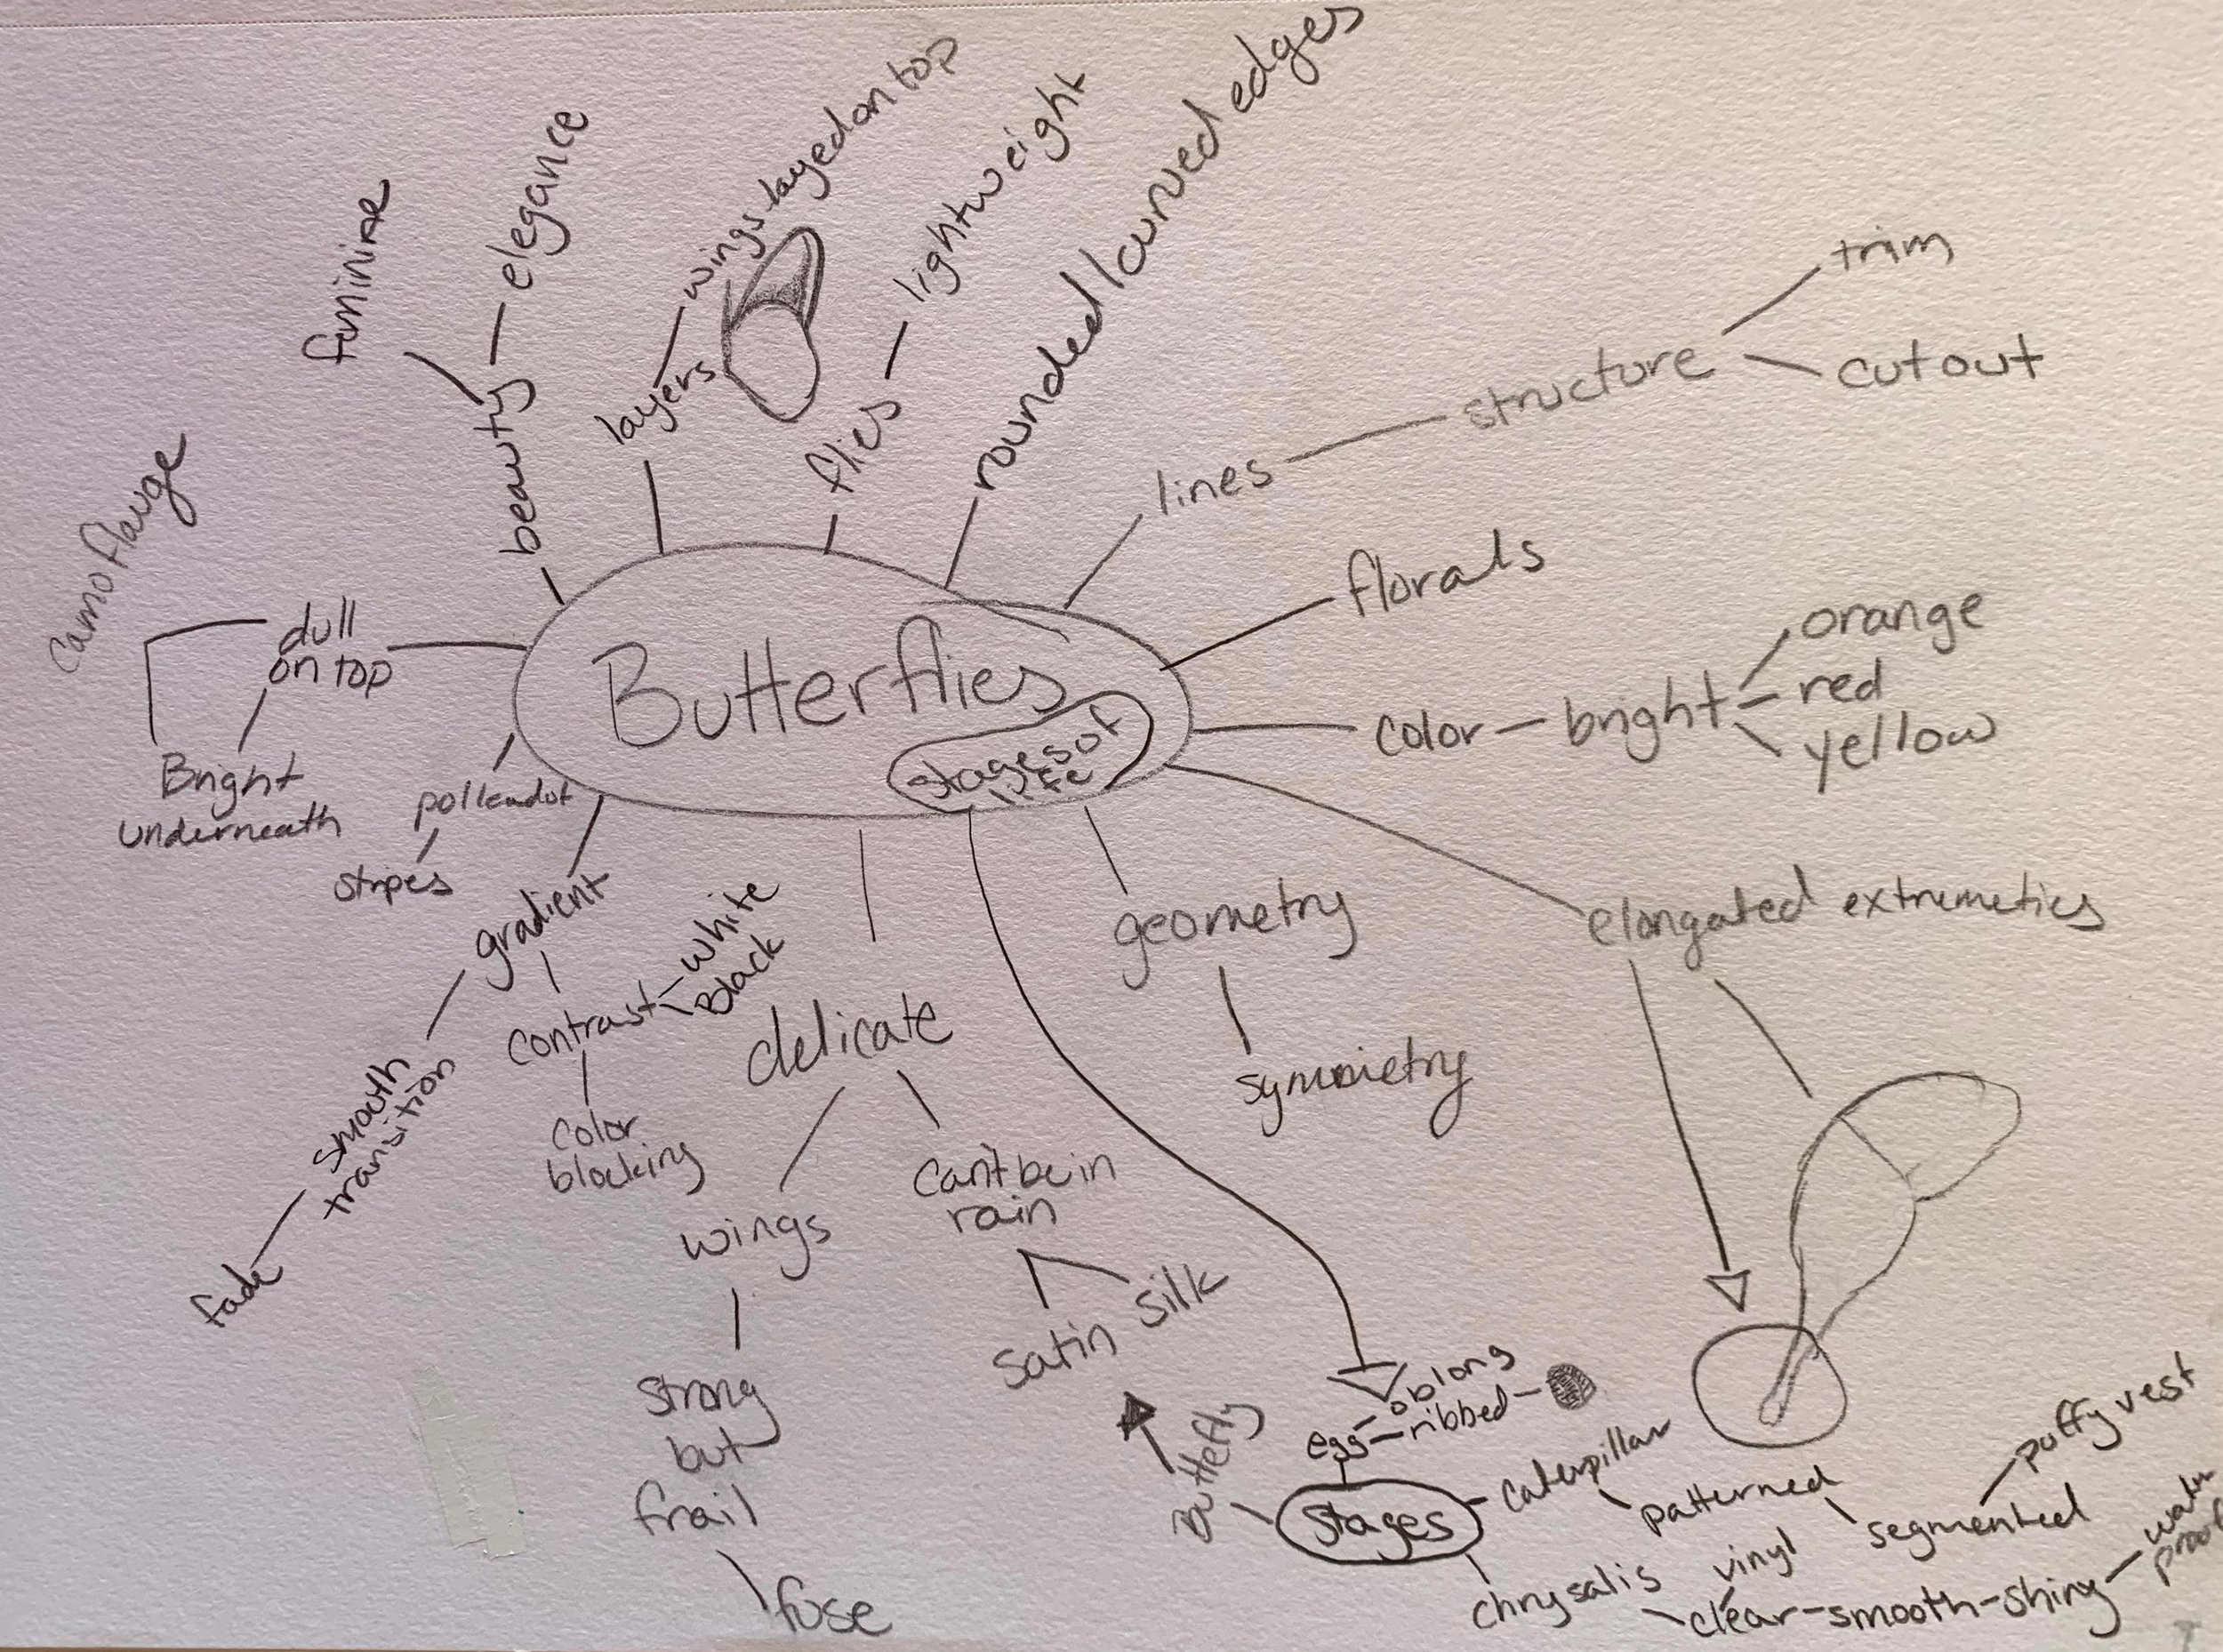 feminine
elegance
beauty
layers
wings layed on top
flies
lightweight
rounded/curved edges
lines
structure
trim
cutout
florals
color
bright
orange
red
yellow
elongated extremeties
Camoflauge
dull
on top
Bright
underneath
Butterflies
stages of
life
polkadot
stripes
gradient
smooth
transition
fade
contrast
white
Black
color
blocking
delicate
wings
strong
but
frail
fuse
Can't be in
rain
satin
silk
geometry
symmetry
egg
oblong
ribbed
stages
caterpillar
patterned
segmented
puffy vest
chrysalis
vinyl
clear-smooth-shiny
water
proof
Butterfly